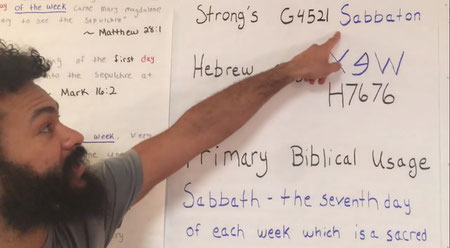 of the week came mary magdalene
to see the sepulchre"
~ Matthew 28:1
of the first day
the sepulchre at
~ Mark 16:2
week,
Strong's G4521 Sabbaton
Hebrew 𐤔𐤁𐤕
H7676
Primary Biblical Usage
Sabbath - the seventh day
of each week which is a sacred